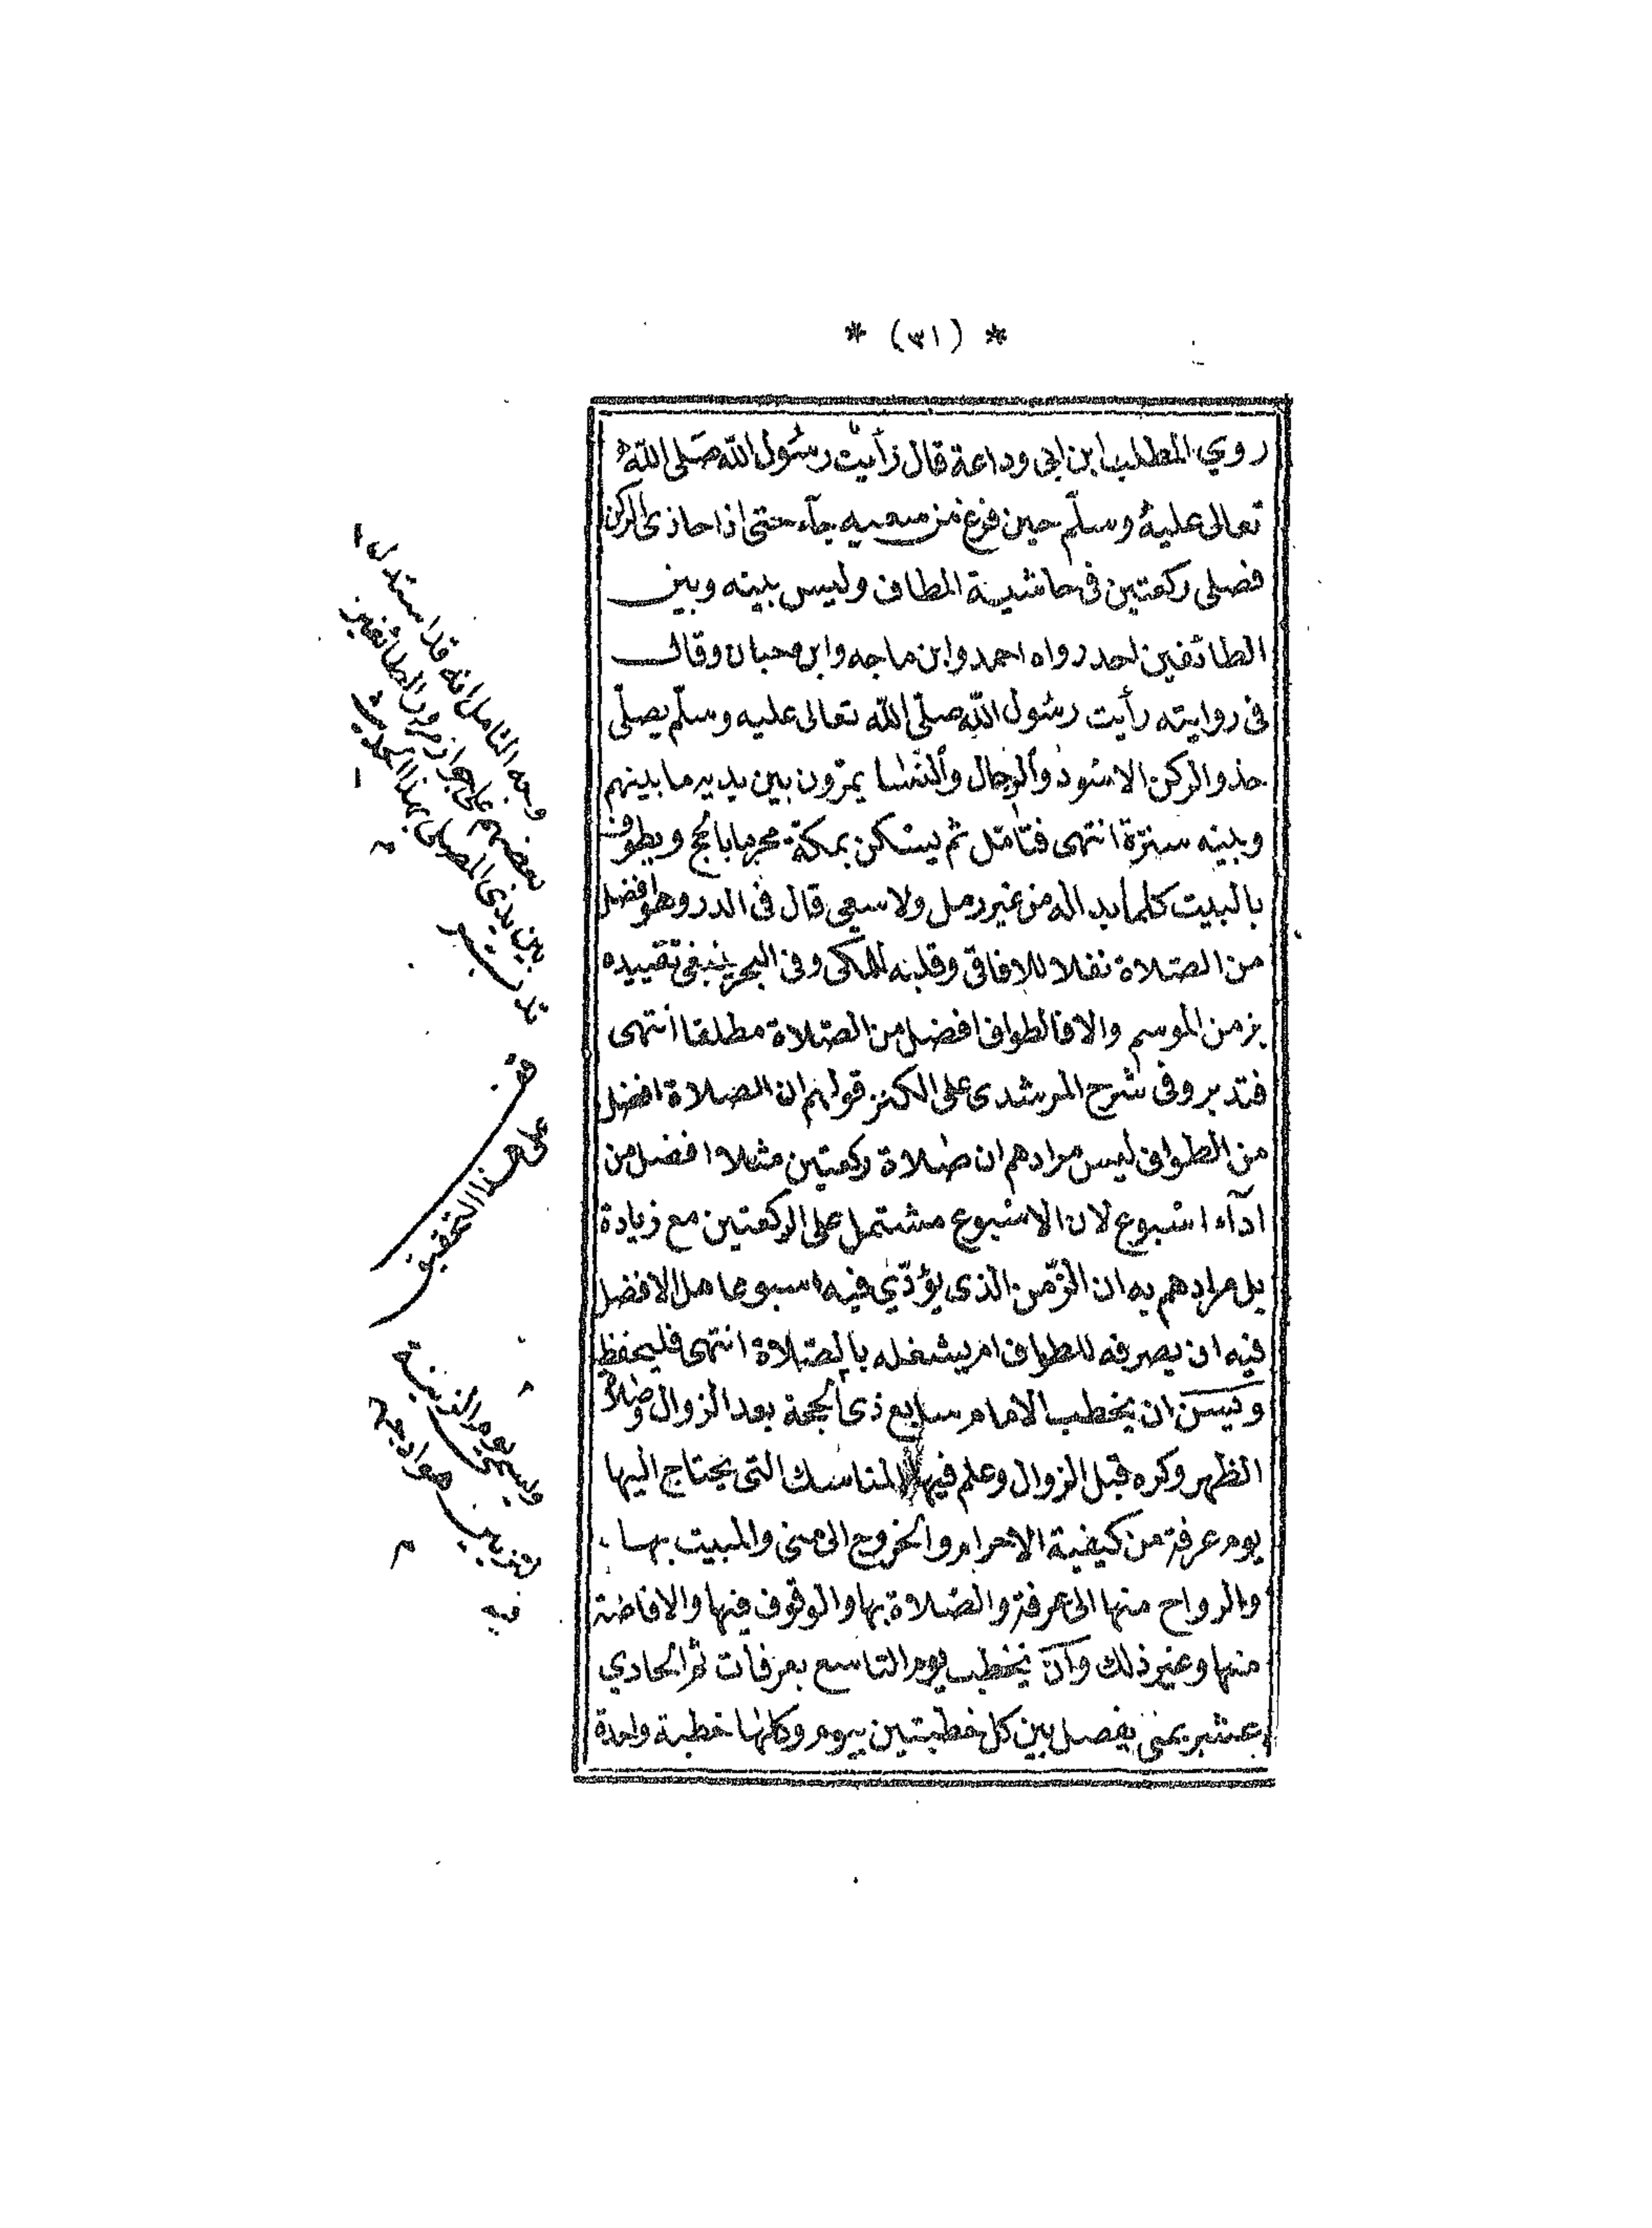 * (٣١) *
روي المطلب ابن ابى وداعة قال رأيت رسول الله صلى الله
تعالى عليه وسلم حين فرغ من سعيه جاء حتى اذا حاذى الركن
فصلى ركعتين فى حاشية المطاف وليس بينه وبين
الطائفين احد رواه احمد وابن ماجه وابن حبان وقال
فى روايته رأيت رسول الله صلى الله تعالى عليه وسلم يصلى
حذو الركن الاسود والرجال والنسا يمرون بين يديه ما بينهم
وبينه سترة انتهى فتامل ثم يسكن بمكة محرما بالحج ويطوف
بالبيت كلما بدا له من غير رمل ولا سعى قال فى الدر وهو افضل
من الصلاة نفلا للافاقى وقلبه للمكى وفى البحر ينبغى تقييده
بزمن الموسم والا فالطواف افضل من الصلاة مطلقا انتهى
فتدبر وفى شرح المرشدى على الكنز قولهم ان الصلاة افضل
من الطواف ليس مرادهم ان صلاة ركعتين مثلا افضل من
اداء اسبوع لان الاسبوع مشتمل على الركعتين مع زيادة
بل مرادهم به ان الزمن الذى يؤدي فيه اسبوعا هل الافضل
فيه ان يصرفه للطواف ام يشغله بالصلاة انتهى فليحفظ
ويسن ان يخطب الامام سابع ذى الحجة بعد الزوال وصلاة
الظهر وكره قبل الزوال وعلم فيها المناسك التى يحتاج اليها
يوم عرفة من كيفية الاحرام والخروج الى منى والمبيت بها
والرواح منها الى عرفة والصلاة بها والوقوف فيها والافاضة
منها وغير ذلك وان يخطب يوم التاسع بعرفات ثم الحادي
عشر بمنى يفصل بين كل خطبتين بيوم وكلها خطبة واحدة
وجه التامل انه قد استدل
بعضهم على جواز مرور الطائفين
بين يدى المصلى بهذا الحديث
تدبر
قف
على هذا التحقيق
ويسمى يوم الزينة
فيه